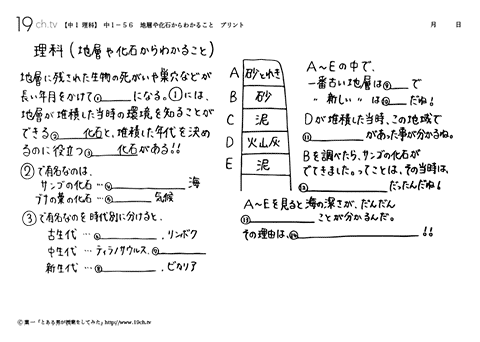 19ch.tv 【中1理科】 中1-56 地層や化石からわかること プリント 月 日
理科(地層や化石からわかること)
地層に残された生物の死がいや巣穴などが
長い年月をかけて①______になる。①には、
地層が堆積した当時の環境を知ることが
できる②______化石と、堆積した年代を決め
るのに役立つ③______化石がある!!
②で有名なのは、
サンゴの化石…④______海
ブナの葉の化石…⑤______気候
③で有名なのを時代別に分けると、
古生代…⑥______,リンボク
中生代…ティラノサウルス,⑦______
新生代…⑧______,ビカリア
A 砂とれき
B 砂
C 泥
D 火山灰
E 泥
A~Eの中で、
一番古い地層は⑨__で
〃 新しい 〃 は⑩__だね!
Dが堆積した当時、この地域で
⑪______があった事が分かるね。
Bを調べたら、サンゴの化石が
でてきました。ってことは、その当時は、
⑫______だったんだね!
A~Eを見ると海の深さが、だんだん
⑬______ことが分かるんだ。
その理由は、⑭______!!
© 葉一「とある男が授業をしてみた」http://www.19ch.tv